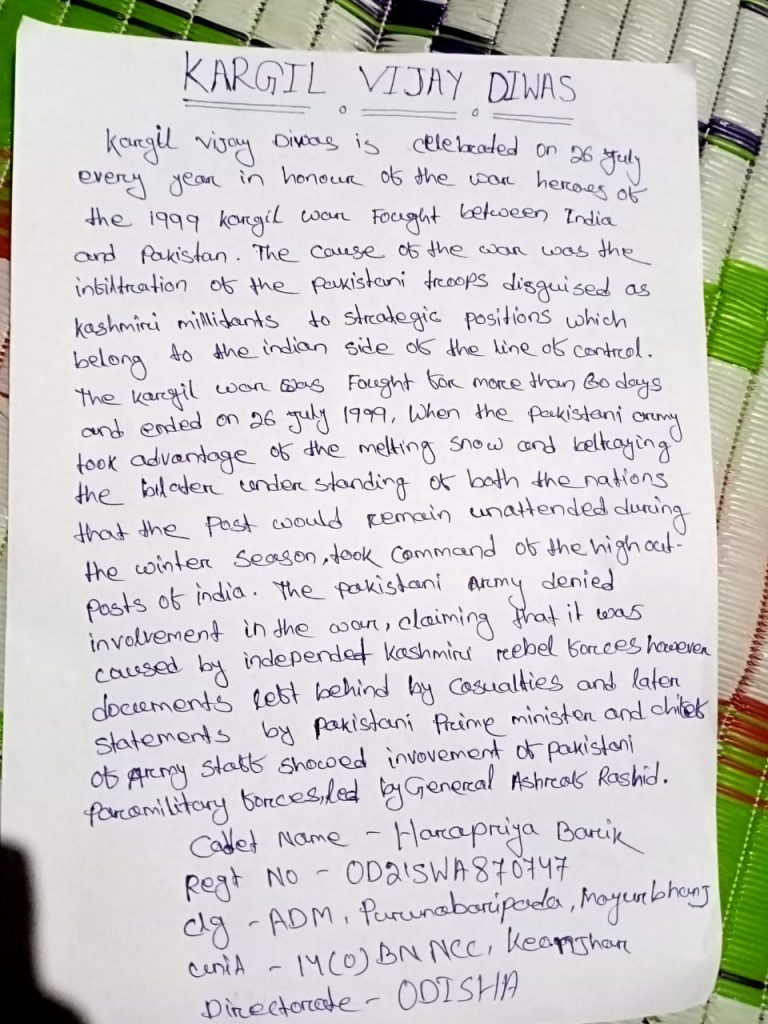 KARGIL VIJAY DIWAS
Kargil Vijay Diwas is celebrated on 26 July
every year in honour of the war heroes of
the 1999 Kargil war Fought between India
and Pakistan. The cause of the war was the
infiltration of the Pakistani troops disguised as
Kashmiri millitants to strategic positions which
belong to the indian side of the line of control.
The Kargil war was Fought for more than 60 days
and ended on 26 July 1999, When the Pakistani army
took advantage of the melting snow and beltraying
the bilater under standing of both the nations
that the Post would remain unattended during
the winter season, took Command of the high out-
Posts of india. The Pakistani Army denied
involvement in the war, claiming that it was
caused by independed Kashmiri reebel forces however
documents left behind by Casualties and later
statements by Pakistani Prime minister and chief
of Army staff showed invovement of pakistani
Paramilitary forces, led by General Ashraf Rashid.
Cadet Name - Harapriya Barik
Regt No - OD21SWA870747
clg - ADM, Purunabaripada, Mayurbhanj
unit - 14(O) BN NCC, Keonjhar
Directorate - ODISHA